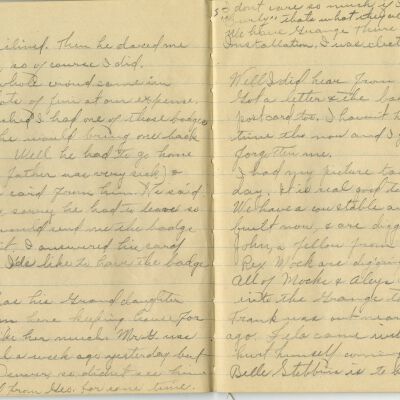 Then he dared me
, so of course I did.
whole crowd came in
lots of fun at our expense.
I had one of those badges
he would bring one back
Well he had to go home
father was very sick) &
a card from him. He said
sorry he had to leave so
would send me the badge
it. I answered his card
I'de like to have the badge
has his Granddaughter
here keeping house for
like her much. Mr. G was
a week ago yesterday but
so didn't see him
from Geo. for some time.
5- dont care so much if I
thats what they
We have Grange
Installation, I was elect
Well I did hear from
Got a letter & the ba
postcard too. I haven't h
time tho now and I g
forgotten me.
I had my picture ta
day. It is real good to
We have a constable a
built now, & are digg
John, a fellow from
Rey Mock are digging
All of Mocks & Aleys
into the Grange to
Frank was out near
ago. Lela came with
hurt himself coming
Belle Stebbins is to b